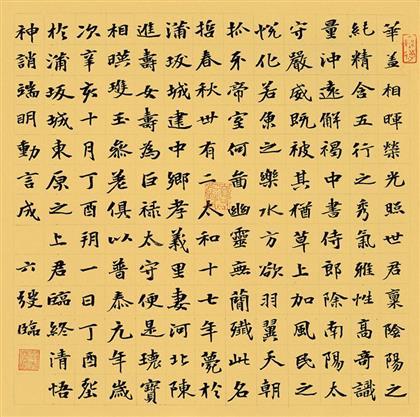 華蓋相暉榮光照世君稟陰陽之
純精含五行之秀氣雅性高奇識
量沖遠解褐中書侍郎除南陽太
守嚴威既被其猶草上加風民之
悅化若魚之樂水方欲羽翼天朝
抓牙帝室何啚幽靈無蕳殲此名
哲春秋卅有二太和十七年薨於
蒲坂城建中鄉孝義里妻河北陳
進壽女壽為巨祿太守便是瓌寶
相暎瓊玉參差俱以普泰元年歲
次辛亥十月丁酉朔一日丁酉塟
於蒲坂城東原之上君臨終清悟
神誚端明動言成 六發臨